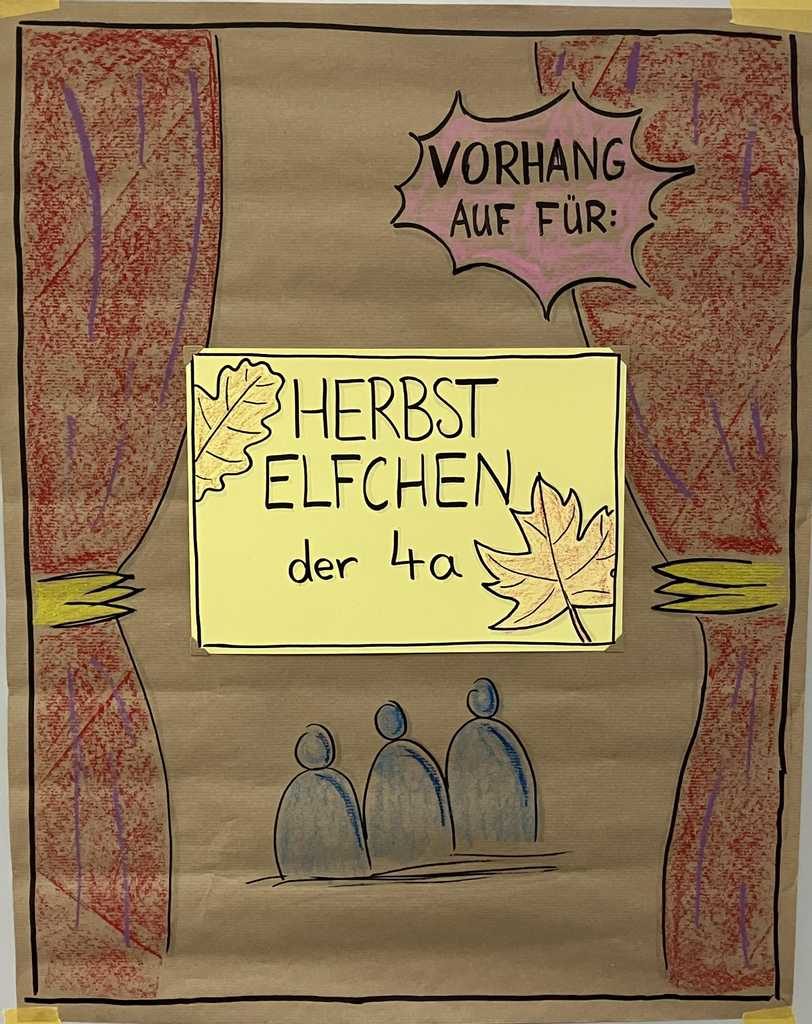 VORHANG
AUF FÜR:
HERBST
ELFCHEN
der 4a